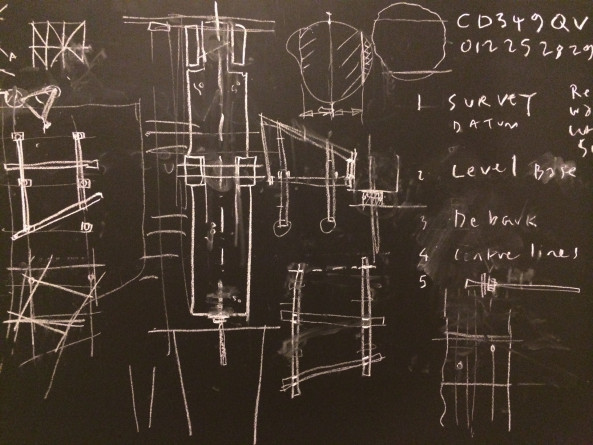 CD349QV
012252829
1 SURVEY
DATUM
2 Level Base
3 Debark
4 Centre lines
5
10